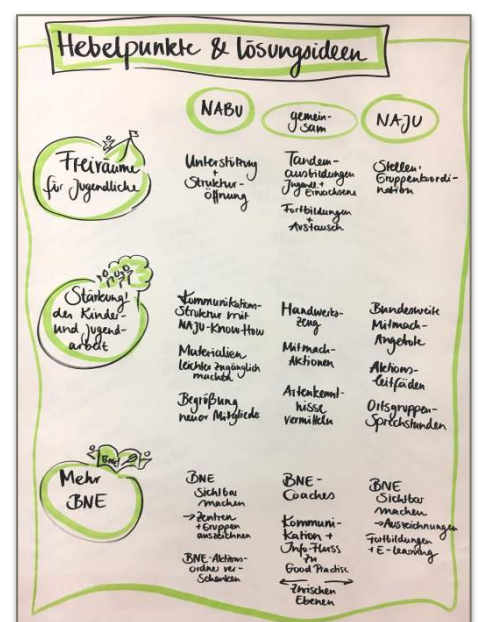 Hebelpunkte & Lösungsideen
NABU
gemein-
sam
NAJU
Freiräume
für Jugendliche
Unterstützung
+
Struktur-
öffnung
Tandem-
ausbildungen
Jugendl. +
Erwachsene
Fortbildungen
+
Austausch
Stellen:
Gruppenkoordi-
nation
Stärkung!
der Kinder-
und Jugend-
arbeit
Kommunikation-
Struktur mit
NAJU-Know-How
Materialien
leichter zugänglich
machen
Begrüßung
neuer Mitglieder
Handwerks-
zeug
Mitmach-
Aktionen
Artenkennt-
nisse
vermitteln
Bundesweite
Mitmach-
Angebote
Aktions-
leitfäden
Ortsgruppen-
Sprechstunden
BNE
Mehr
BNE
BNE
Sichtbar
machen
→ Zentren
+ Gruppen
auszeichnen
BNE-Aktions-
ordner ver-
schenken
BNE-
Coaches
Kommuni-
kation +
Info-Fluss
zu
Good Practise
Zwischen
Ebenen
BNE
Sichtbar
machen
→ Auszeichnungen
Fortbildungen
+ E-Learning